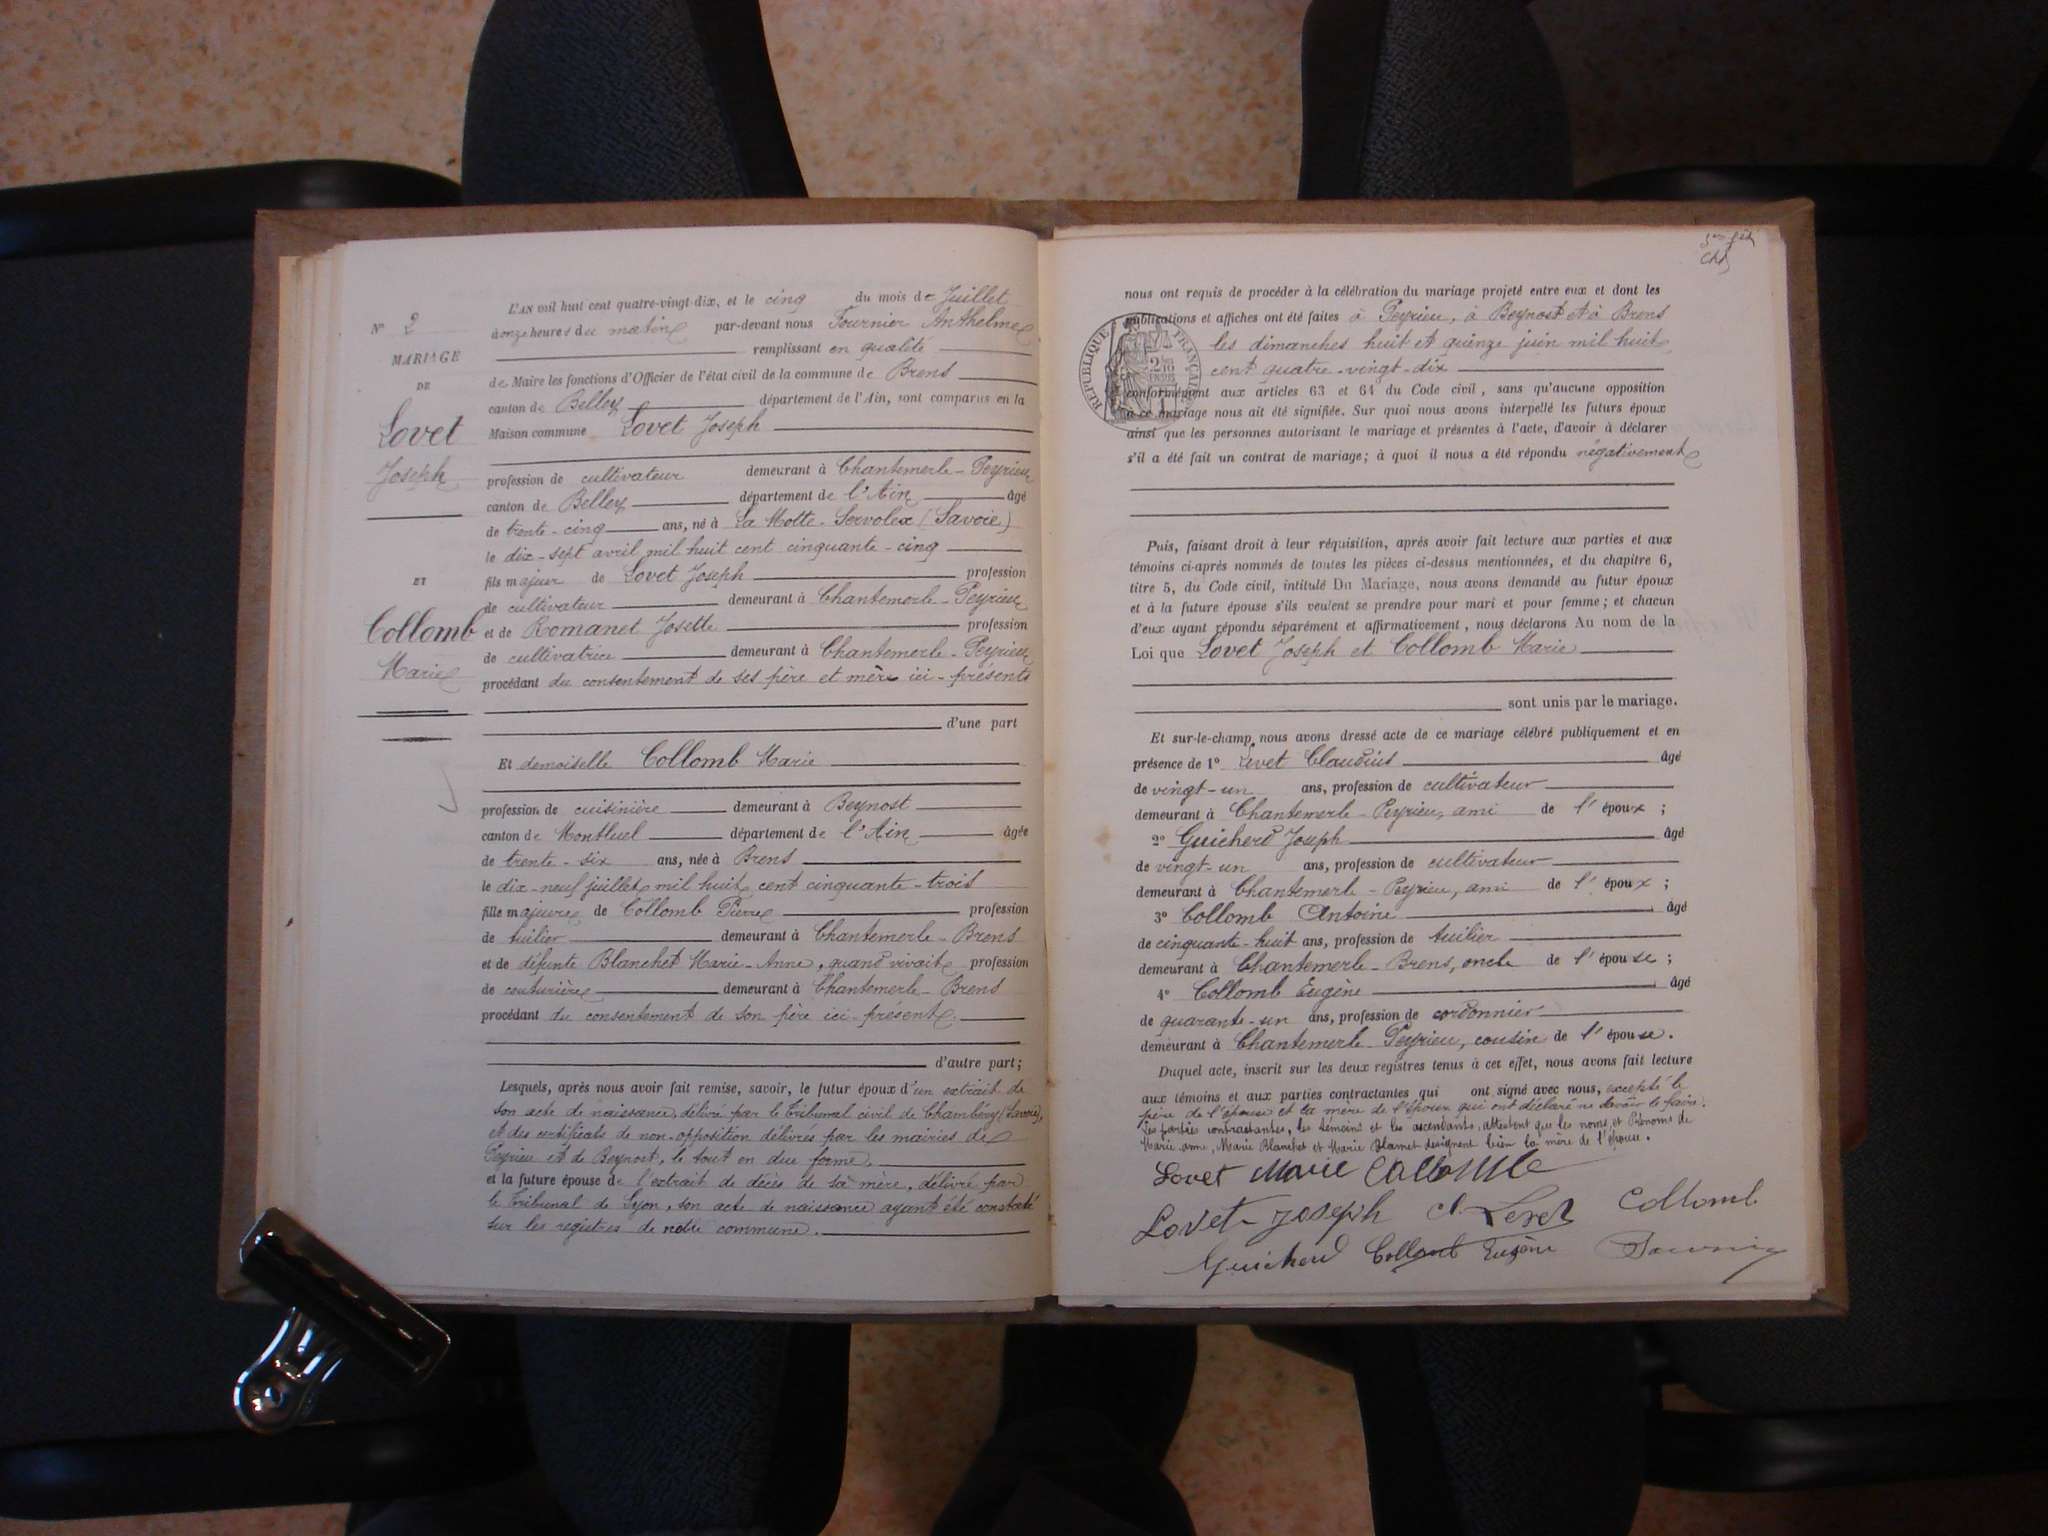 N° 2
MARIAGE
DE
Lovet
Joseph
ET
Collomb
Marie
L'AN mil huit cent quatre-vingt-dix, et le cinq du mois de Juillet
à onze heures du matin par-devant nous Fournier Anthelme
remplissant en qualité
de Maire les fonctions d'Officier de l'état civil de la commune de Brens
canton de Belley département de l'Ain, sont comparus en la
Maison commune Lovet Joseph
profession de cultivateur demeurant à Chantemerle - Peyrieu
canton de Belley département de l'Ain âgé
de trente-cinq ans, né à La Motte-Servolex (Savoie)
le dix-sept avril mil huit cent cinquante-cinq
fils majeur de Lovet Joseph profession
de cultivateur demeurant à Chantemerle-Peyrieu
et de Romanet Josette profession
de cultivatrice demeurant à Chantemerle-Peyrieu
procédant du consentement de ses père et mère ici-présents
d'une part
Et demoiselle Collomb Marie
profession de cuisinière demeurant à Beynost
canton de Montluel département de l'Ain âgée
de trente-six ans, née à Brens
le dix-neuf juillet mil huit cent cinquante-trois
fille majeure de Collomb Pierre profession
de tuilier demeurant à Chantemerle-Brens
et de défunte Blanchet Marie-Anne, quand vivait profession
de couturière demeurant à Chantemerle-Brens
procédant du consentement de son père ici-présent.
d'autre part;
Lesquels, après nous avoir fait remise, savoir, le futur époux d'un extrait de
son acte de naissance, délivré par le Tribunal civil de Chambéry (Savoie),
et des certificats de non-opposition délivrés par les mairies de
Peyrieu et de Beynost, le tout en due forme,
et la future épouse de l'extrait de décès de sa mère, délivré par
le Tribunal de Lyon, son acte de naissance ayant été constaté
sur les registres de notre commune.
nous ont requis de procéder à la célébration du mariage projeté entre eux et dont les
publications et affiches ont été faites à Peyrieu, à Beynost et à Brens
les dimanches huit et quinze juin mil huit
cent quatre-vingt-dix
RÉPUBLIQUE FRANÇAISE
conformément aux articles 63 et 64 du Code civil, sans qu'aucune opposition
à ce mariage nous ait été signifiée. Sur quoi nous avons interpellé les futurs époux
ainsi que les personnes autorisant le mariage et présentes à l'acte, d'avoir à déclarer
s'il a été fait un contrat de mariage; à quoi il nous a été répondu négativement
Puis, faisant droit à leur réquisition, après avoir fait lecture aux parties et aux
témoins ci-après nommés de toutes les pièces ci-dessus mentionnées, et du chapitre 6,
titre 5, du Code civil, intitulé Du Mariage, nous avons demandé au futur époux
et à la future épouse s'ils veulent se prendre pour mari et pour femme; et chacun
d'eux ayant répondu séparément et affirmativement, nous déclarons Au nom de la
Loi que Lovet Joseph et Collomb Marie
sont unis par le mariage.
Et sur-le-champ, nous avons dressé acte de ce mariage célébré publiquement et en
présence de 1° Levet Claudius âgé
de vingt-un ans, profession de cultivateur
demeurant à Chantemerle-Peyrieu, ami de l'époux;
2° Guicherd Joseph âgé
de vingt-un ans, profession de cultivateur
demeurant à Chantemerle-Peyrieu, ami de l'époux;
3° Collomb Antoine âgé
de cinquante-huit ans, profession de tuilier
demeurant à Chantemerle-Brens, oncle de l'épouse;
4° Collomb Eugène âgé
de quarante-un ans, profession de cordonnier
demeurant à Chantemerle-Peyrieu, cousin de l'épouse.
Duquel acte, inscrit sur les deux registres tenus à cet effet, nous avons fait lecture
aux témoins et aux parties contractantes qui ont signé avec nous, excepté le
père de l'épouse et la mère de l'époux qui ont déclaré ne savoir le faire.
Les parties contractantes, les témoins et les ascendants, attestent que les noms et Prénoms de
Marie anne, Marie Blanchet et Marie Blamet désignent bien la mère de l'épouse.
Lovet Marie Collomb
Lovet Joseph Cl. Levet Collomb
Guicherd Collomb Eugène Fournier